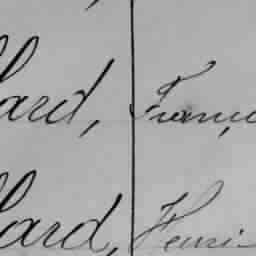 lard, Franç
lard, Henri